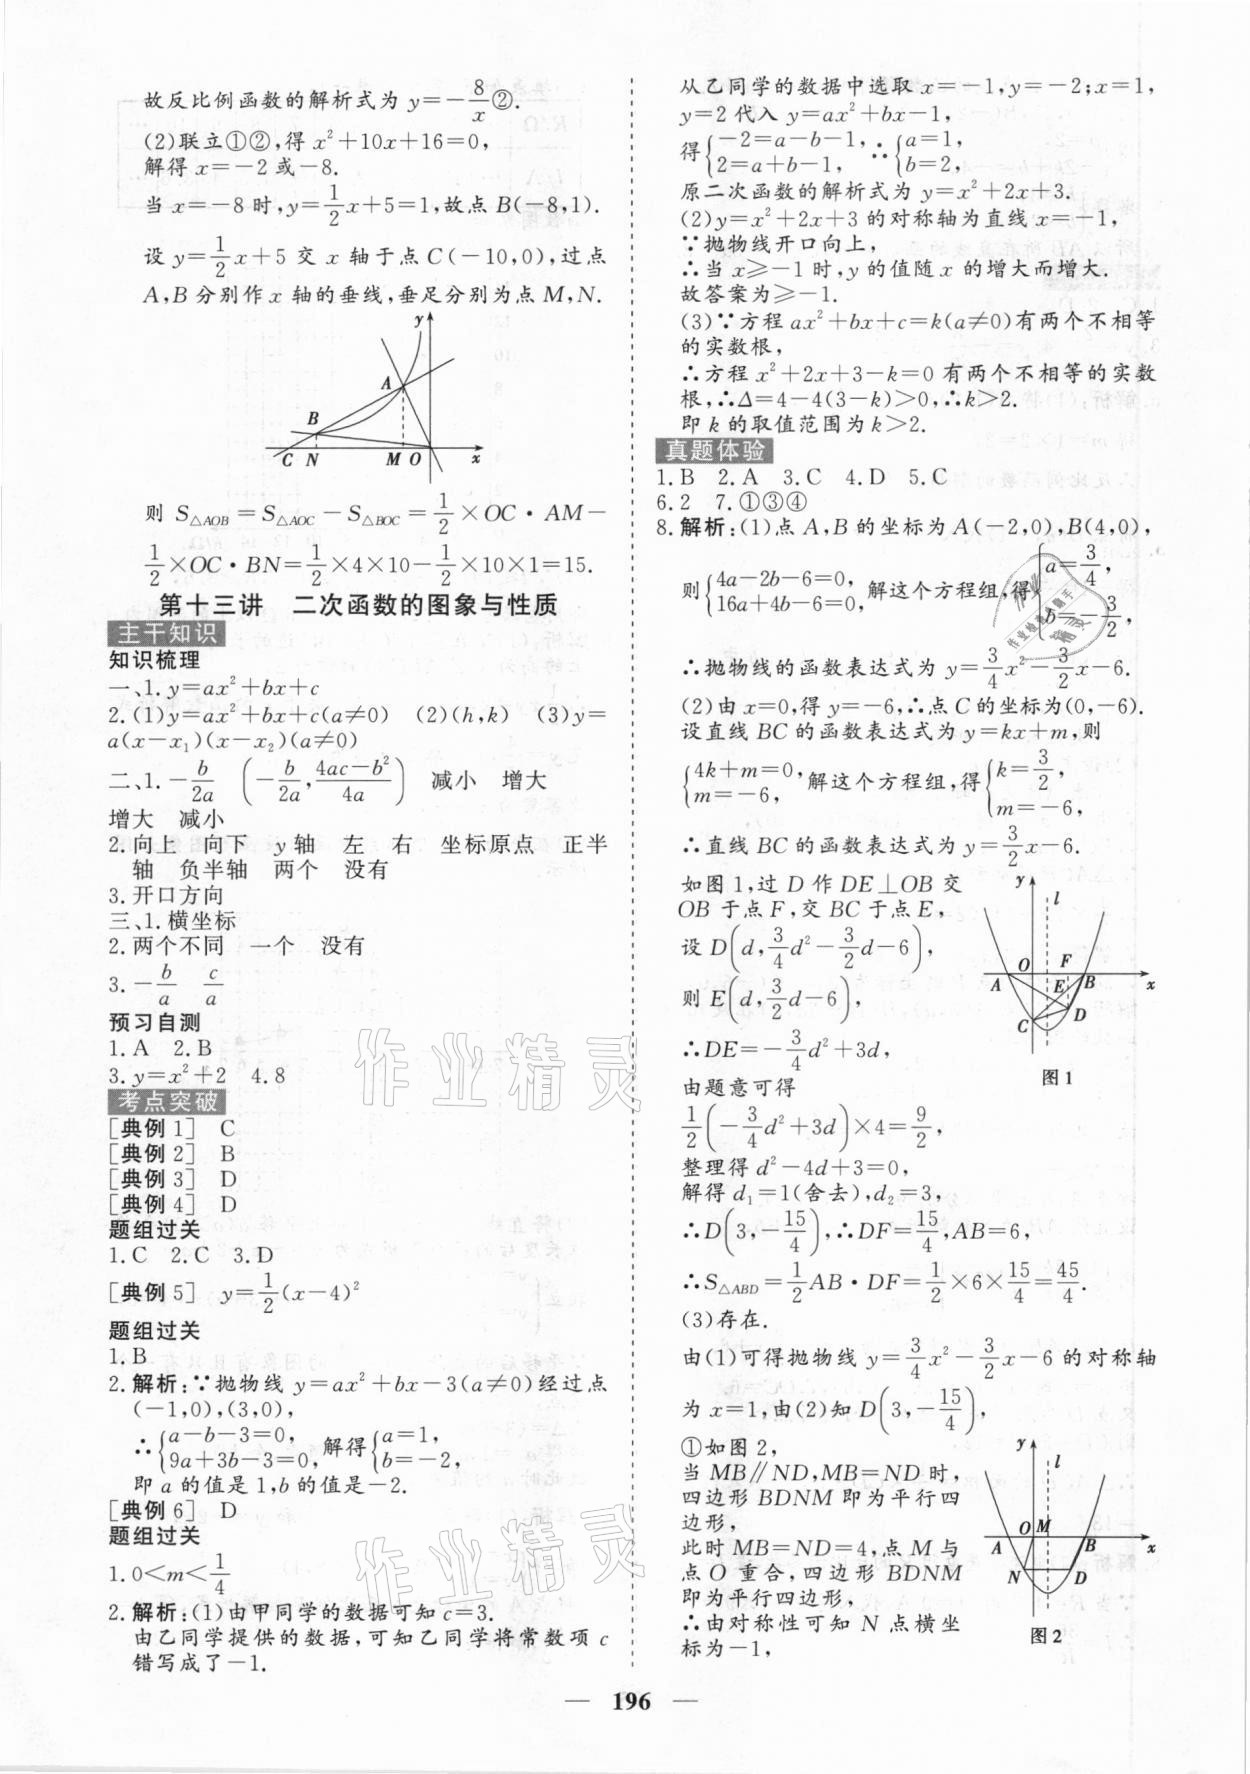 故反比例函数的解析式为 y=-8/x②.
(2)联立①②,得 x²+10x+16=0,
解得 x=-2 或-8.
当 x=-8 时,y=1/2x+5=1,故点 B(-8,1).
设 y=1/2x+5 交 x 轴于点 C(-10,0),过点
A,B 分别作 x 轴的垂线,垂足分别为点 M,N.
y
A
B
C N M O x
则 S△AOB=S△AOC-S△BOC=1/2×OC·AM-
1/2×OC·BN=1/2×4×10-1/2×10×1=15.
第十三讲 二次函数的图象与性质
主干知识
知识梳理
一、1. y=ax²+bx+c
2.(1)y=ax²+bx+c(a≠0) (2)(h,k) (3)y=
a(x-x₁)(x-x₂)(a≠0)
二、1.-b/2a (-b/2a,4ac-b²/4a) 减小 增大
增大 减小
2.向上 向下 y 轴 左 右 坐标原点 正半
轴 负半轴 两个 没有
3.开口方向
三、1.横坐标
2.两个不同 一个 没有
3.-b/a c/a
预习自测
1.A 2.B
3.y=x²+2 4.8
考点突破
[典例 1] C
[典例 2] B
[典例 3] D
[典例 4] D
题组过关
1.C 2.C 3.D
[典例 5] y=1/2(x-4)²
题组过关
1.B
2.解析:∵抛物线 y=ax²+bx-3(a≠0)经过点
(-1,0),(3,0),
∴{a-b-3=0, 9a+3b-3=0, 解得{a=1, b=-2,
即 a 的值是 1,b 的值是-2.
[典例 6] D
题组过关
1.0<m<1/4
2.解析:(1)由甲同学的数据可知 c=3.
由乙同学提供的数据,可知乙同学将常数项 c
错写成了-1.
从乙同学的数据中选取 x=-1,y=-2;x=1,
y=2 代入 y=ax²+bx-1,
得{-2=a-b-1, 2=a+b-1, ∴{a=1, b=2,
原二次函数的解析式为 y=x²+2x+3.
(2)y=x²+2x+3 的对称轴为直线 x=-1,
∵抛物线开口向上,
∴当 x≥-1 时,y 的值随 x 的增大而增大.
故答案为≥-1.
(3)∵方程 ax²+bx+c=k(a≠0)有两个不相等
的实数根,
∴方程 x²+2x+3-k=0 有两个不相等的实数
根,∴Δ=4-4(3-k)>0,∴k>2.
即 k 的取值范围为 k>2.
真题体验
1.B 2.A 3.C 4.D 5.C
6.2 7.①③④
8.解析:(1)点 A,B 的坐标为 A(-2,0),B(4,0),
则{4a-2b-6=0, 16a+4b-6=0, 解这个方程组,得{a=3/4, b=-3/2,
∴抛物线的函数表达式为 y=3/4x²-3/2x-6.
(2)由 x=0,得 y=-6,∴点 C 的坐标为(0,-6).
设直线 BC 的函数表达式为 y=kx+m,则
{4k+m=0, m=-6, 解这个方程组,得{k=3/2, m=-6,
∴直线 BC 的函数表达式为 y=3/2x-6.
如图 1,过 D 作 DE⊥OB 交
OB 于点 F,交 BC 于点 E,
设 D(d,3/4d²-3/2d-6),
则 E(d,3/2d-6),
∴DE=-3/4d²+3d,
由题意可得
1/2(-3/4d²+3d)×4=9/2,
整理得 d²-4d+3=0,
解得 d₁=1(舍去),d₂=3,
y l
O F
A E B x
C D
图 1
∴D(3,-15/4),∴DF=15/4,AB=6,
∴S△ABD=1/2AB·DF=1/2×6×15/4=45/4.
(3)存在.
由(1)可得抛物线 y=3/4x²-3/2x-6 的对称轴
为 x=1,由(2)知 D(3,-15/4),
①如图 2,
当 MB∥ND,MB=ND 时,
四边形 BDNM 即为平行四
边形,
此时 MB=ND=4,点 M 与
点 O 重合,四边形 BDNM
即为平行四边形,
∴由对称性可知 N 点横坐
标为-1,
y l
O M
A B x
N D
图 2
— 196 —
作业精灵
作业精灵